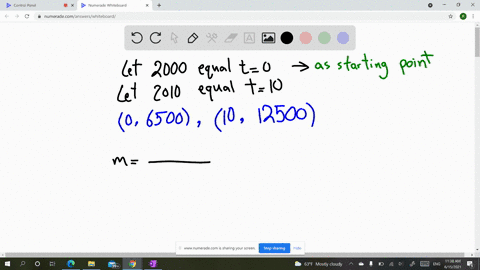 Control Panel
Numerade Whiteboard
numerade.com/answers/whiteboard/
Let 2000 equal t=0 → as starting point
Let 2010 equal t=10
(0, 6500), (10, 12500)
m=
www.numerade.com is sharing your screen.
Stop sharing
Hide
Type here to search
63°F Mostly cloudy
ENG
11:06 AM